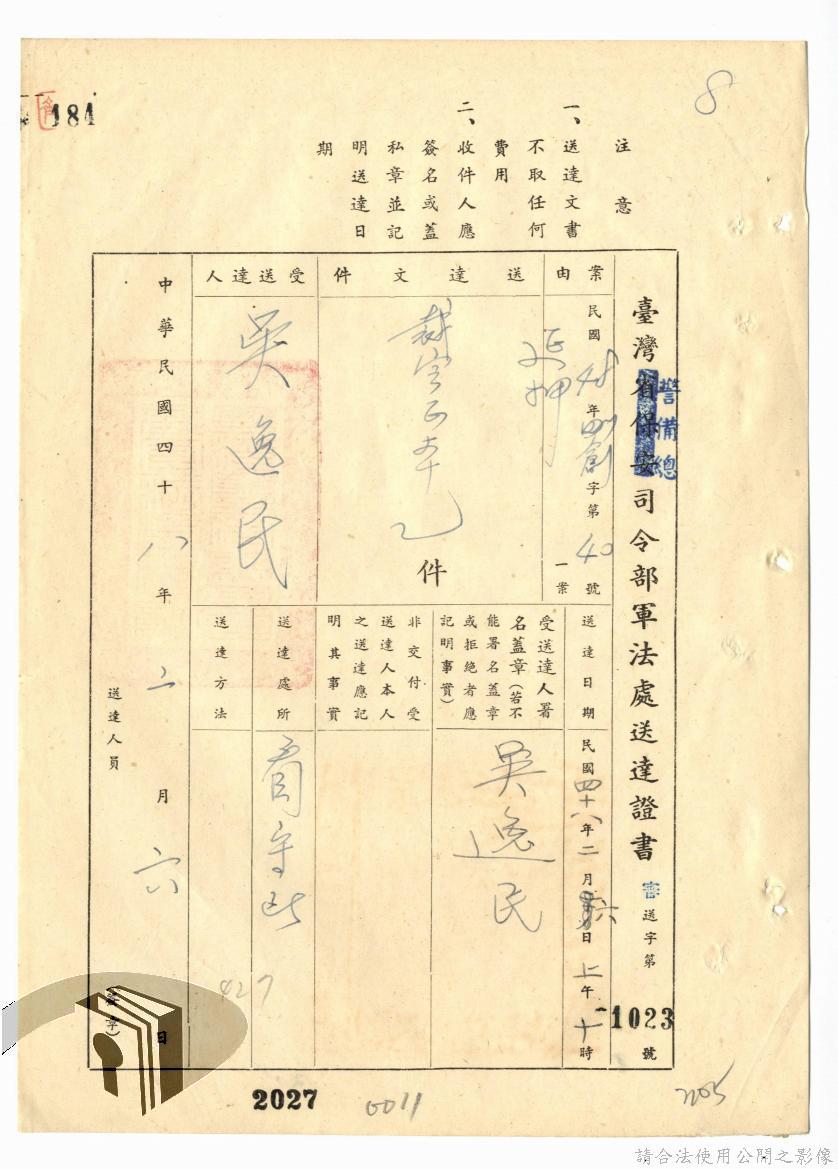 8
184
注意
一、送達文書
不取任何
費用
二、收件人應
簽名或蓋
私章並記
明送達日
期
臺灣省保安司令部軍法處送達證書
警備總
審送字第
1023
號
案由
民國48年
字第40號
一案
延押
送達文件
裁定正本乙
件
受送達人
吳逸民
送達日期
民國四十八年二月六日上午十時
受送達人署
名蓋章(若不
能署名蓋章
或拒絕者應
記明事實)
吳逸民
非交付受
送達人本人
之送達應記
明其事實
送達處所
看守所
送達方法
427
中華民國四十八年二月六日
送達人員
(簽章)
2027
0011
請合法使用公開之影像